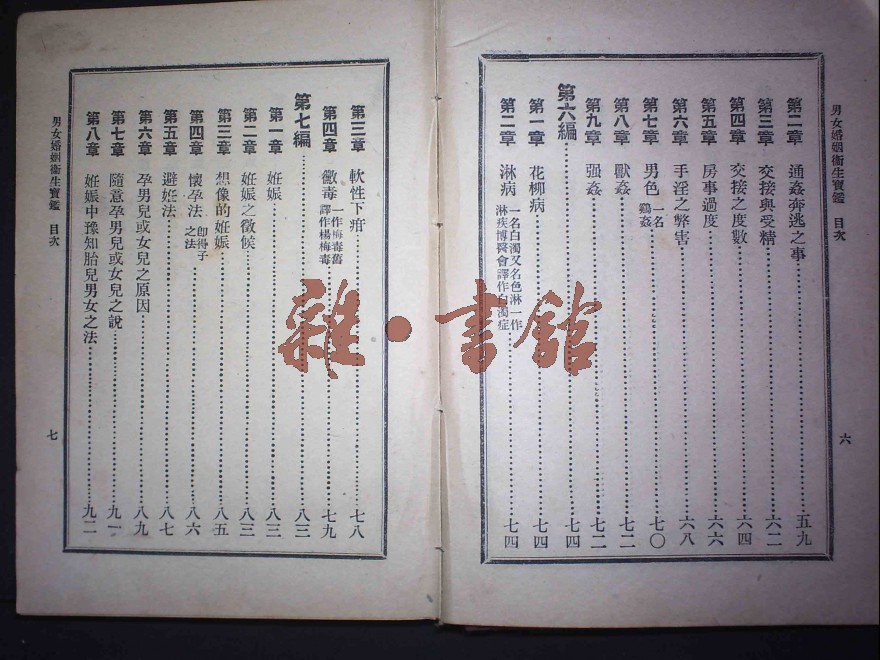 男女婚姻衞生寶鑑　目次
六
第二章　通姦奔逃之事　五九
第三章　交接與受精　六二
第四章　交接之度數　六四
第五章　房事過度　六六
第六章　手淫之弊害　六八
第七章　男色　一名鷄姦　七〇
第八章　獸姦　七二
第九章　强姦　七二
第六編　七四
第一章　花柳病　七四
第二章　淋病　一名白濁又名色淋一作淋疾博醫會譯作白濁症　七四
第三章　軟性下疳　七八
第四章　黴毒　一作梅毒舊譯作楊梅毒　七九
第七編　八三
第一章　妊娠　八三
第二章　妊娠之徵候　八三
第三章　想像的妊娠　八五
第四章　懷孕法　卽得子之法　八六
第五章　避妊法　八七
第六章　孕男兒或女兒之原因　八九
第七章　隨意孕男兒或女兒之說　九一
第八章　妊娠中豫知胎兒男女之法　九二
男女婚姻衞生寶鑑　目次
七
雜·書館